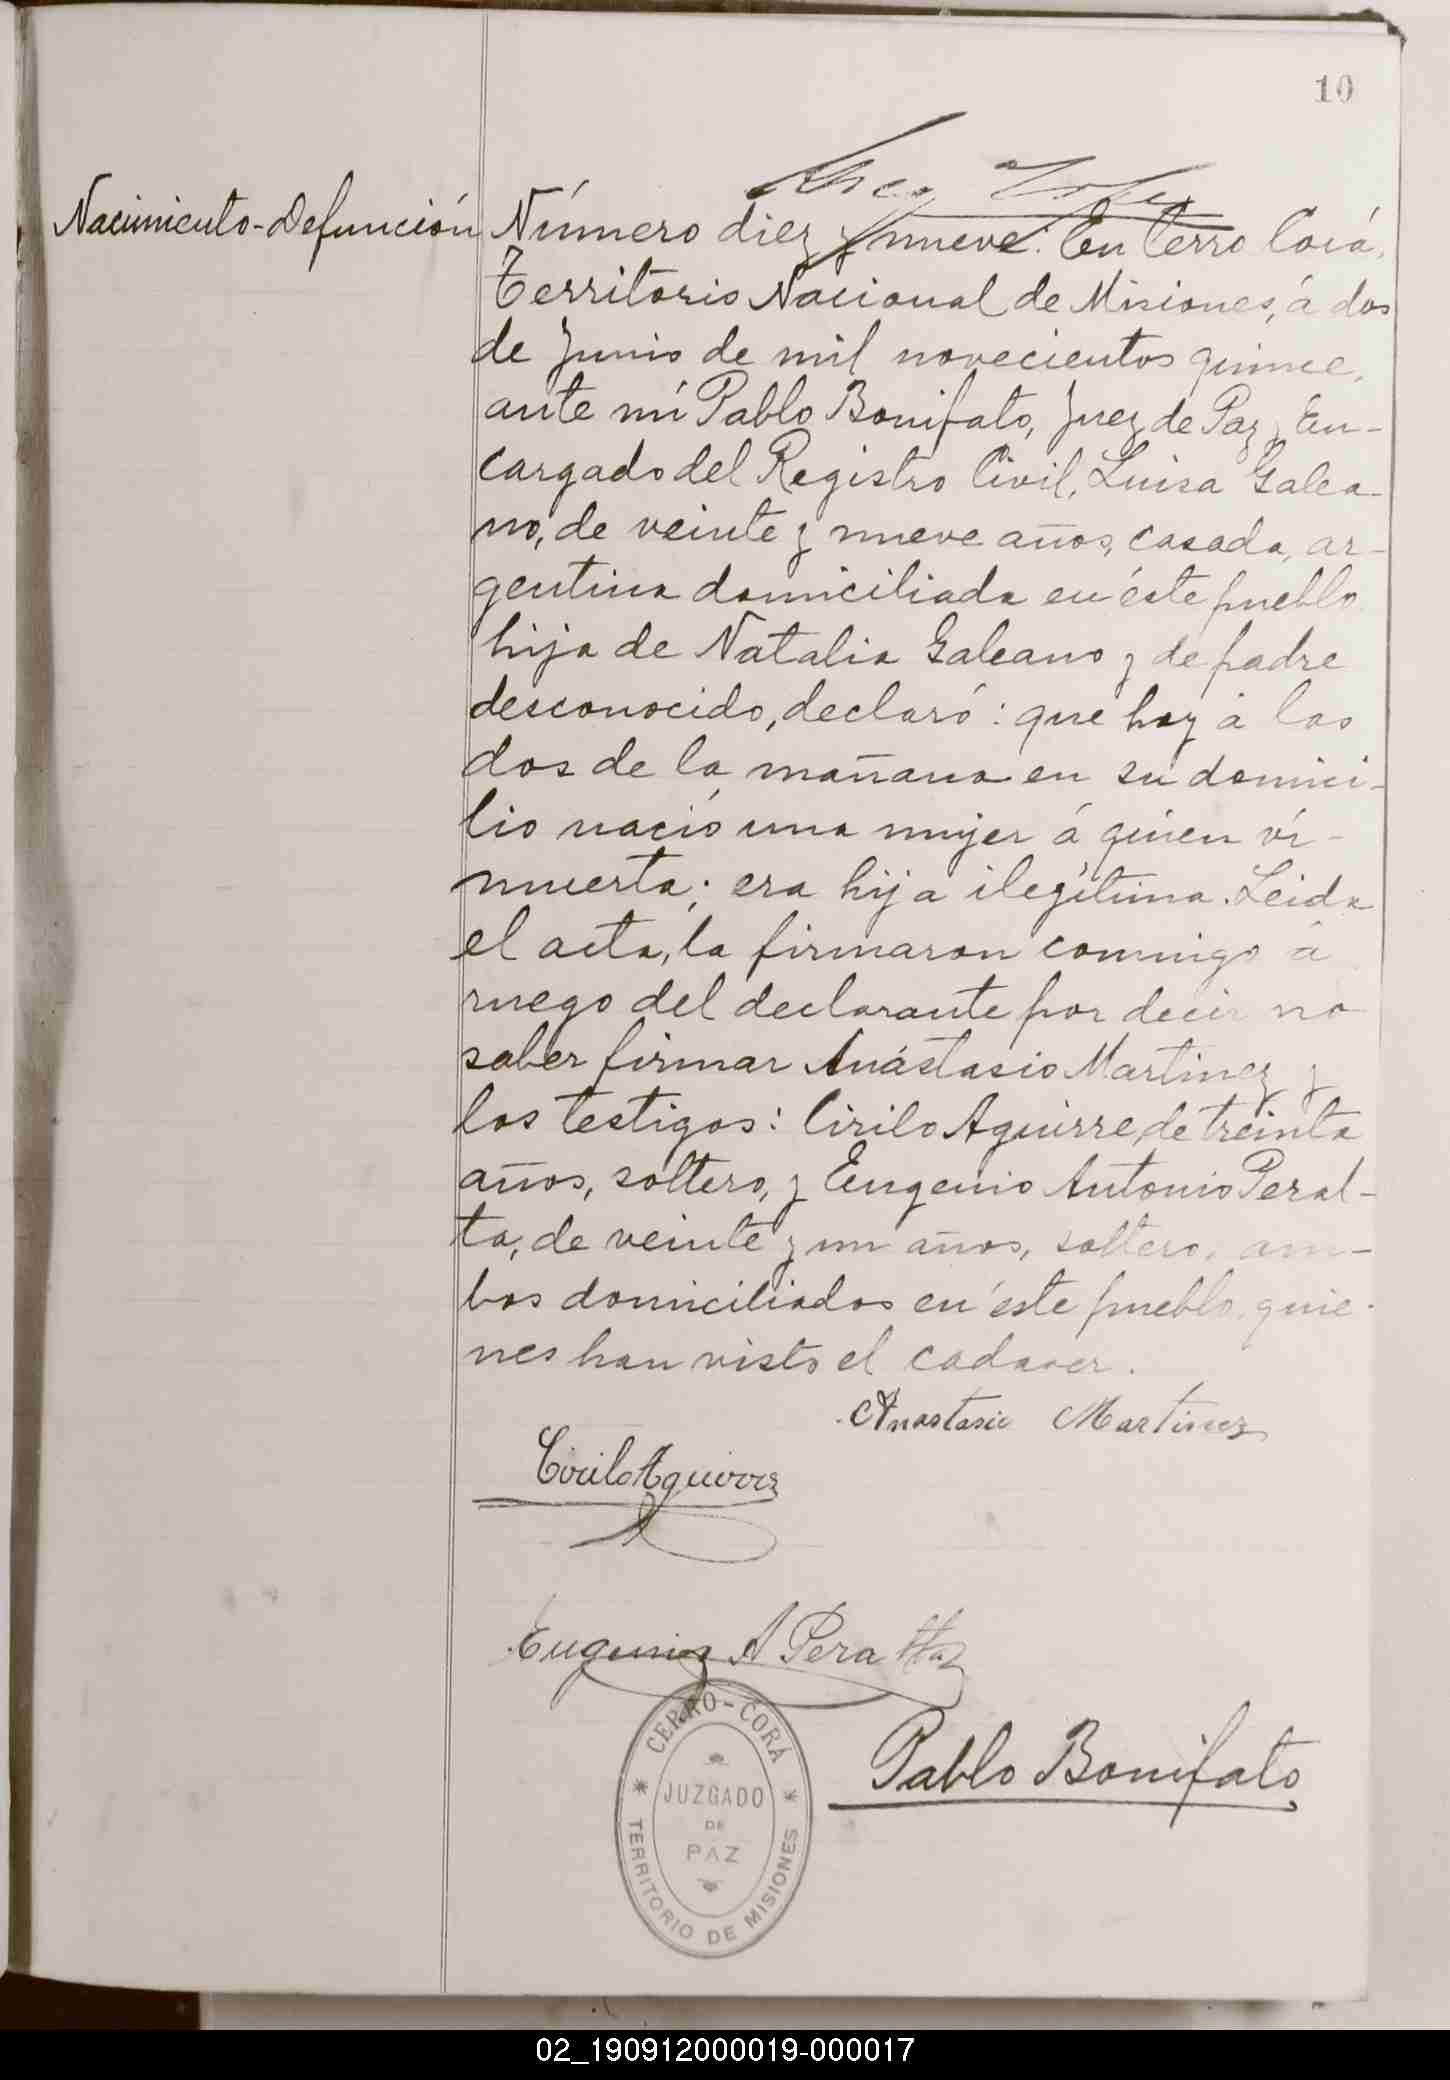 10
Nacimiento-Defunción
Número diez y nueve: En Cerro Corá,
Territorio Nacional de Misiones, á dos
de Junio de mil novecientos quince,
ante mí Pablo Bonifato, Juez de Paz y En-
cargado del Registro Civil, Luisa Galea-
no, de veinte y nueve años, casada, ar-
gentina domiciliada en éste pueblo
hija de Natalia Galeano y de padre
desconocido, declaró: que hoy á las
dos de la mañana en su domici-
lio nació una mujer á quien ví
muerta; era hija ilegítima. Leida
el acta, la firmaron conmigo á
ruego del declarante por decir no
saber firmar Anástasio Martinez y
los testigos: Cirilo Aguirre, de treinta
años, soltero, y Eugenio Antonio Peral-
ta, de veinte y un años, soltero, am-
bos domiciliados en éste pueblo, quie-
nes han visto el cadaver.
Anastasio Martinez
Cirilo Aguirre
Eugenio A Peralta
Pablo Bonifato
CERRO-CORÁ
JUZGADO
DE
PAZ
TERRITORIO DE MISIONES
02_190912000019-000017